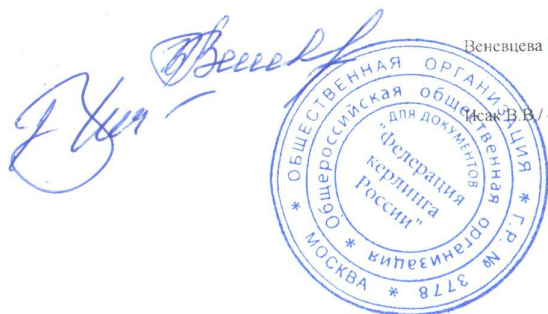 Веневцева
Исак В.В./
* ОБЩЕСТВЕННАЯ ОРГАНИЗАЦИЯ * Г.Р. № 3778 * МОСКВА
* Общероссийская общественная организация
ДЛЯ ДОКУМЕНТОВ
"Федерация
керлинга
России"